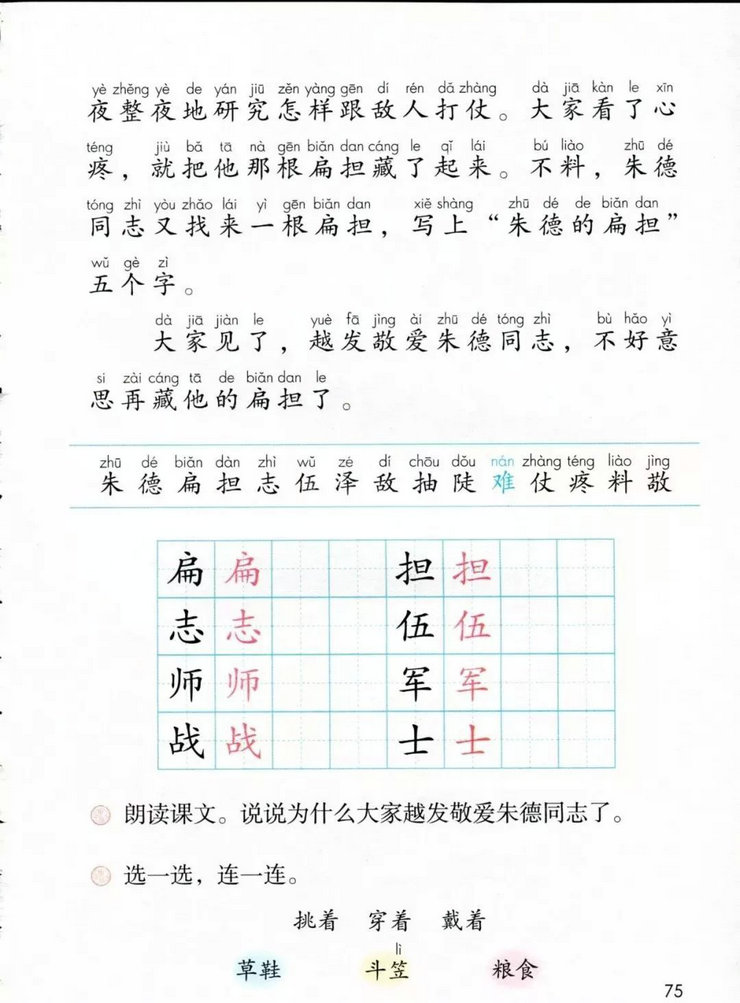 yè zhěng yè de yán jiū zěn yàng gēn dí rén dǎ zhàng dà jiā kàn le xīn
夜整夜地研究怎样跟敌人打仗。大家看了心
téng jiù bǎ tā nà gēn biǎn dan cáng le qǐ lái bú liào zhū dé
疼，就把他那根扁担藏了起来。不料，朱德
tóng zhì yòu zhǎo lái yì gēn biǎn dan xiě shàng zhū dé de biǎn dan
同志又找来一根扁担，写上“朱德的扁担”
wǔ gè zì
五个字。
dà jiā jiàn le yuè fā jìng ài zhū dé tóng zhì bù hǎo yì
大家见了，越发敬爱朱德同志，不好意
si zài cáng tā de biǎn dan le
思再藏他的扁担了。
zhū dé biǎn dàn zhì wǔ zé dí chōu dǒu nán zhàng téng liào jìng
朱德扁担志伍泽敌抽陡难仗疼料敬
扁扁 担担
志志 伍伍
师师 军军
战战 士士
朗读课文。说说为什么大家越发敬爱朱德同志了。
选一选，连一连。
挑着 穿着 戴着
lì
草鞋 斗笠 粮食
75